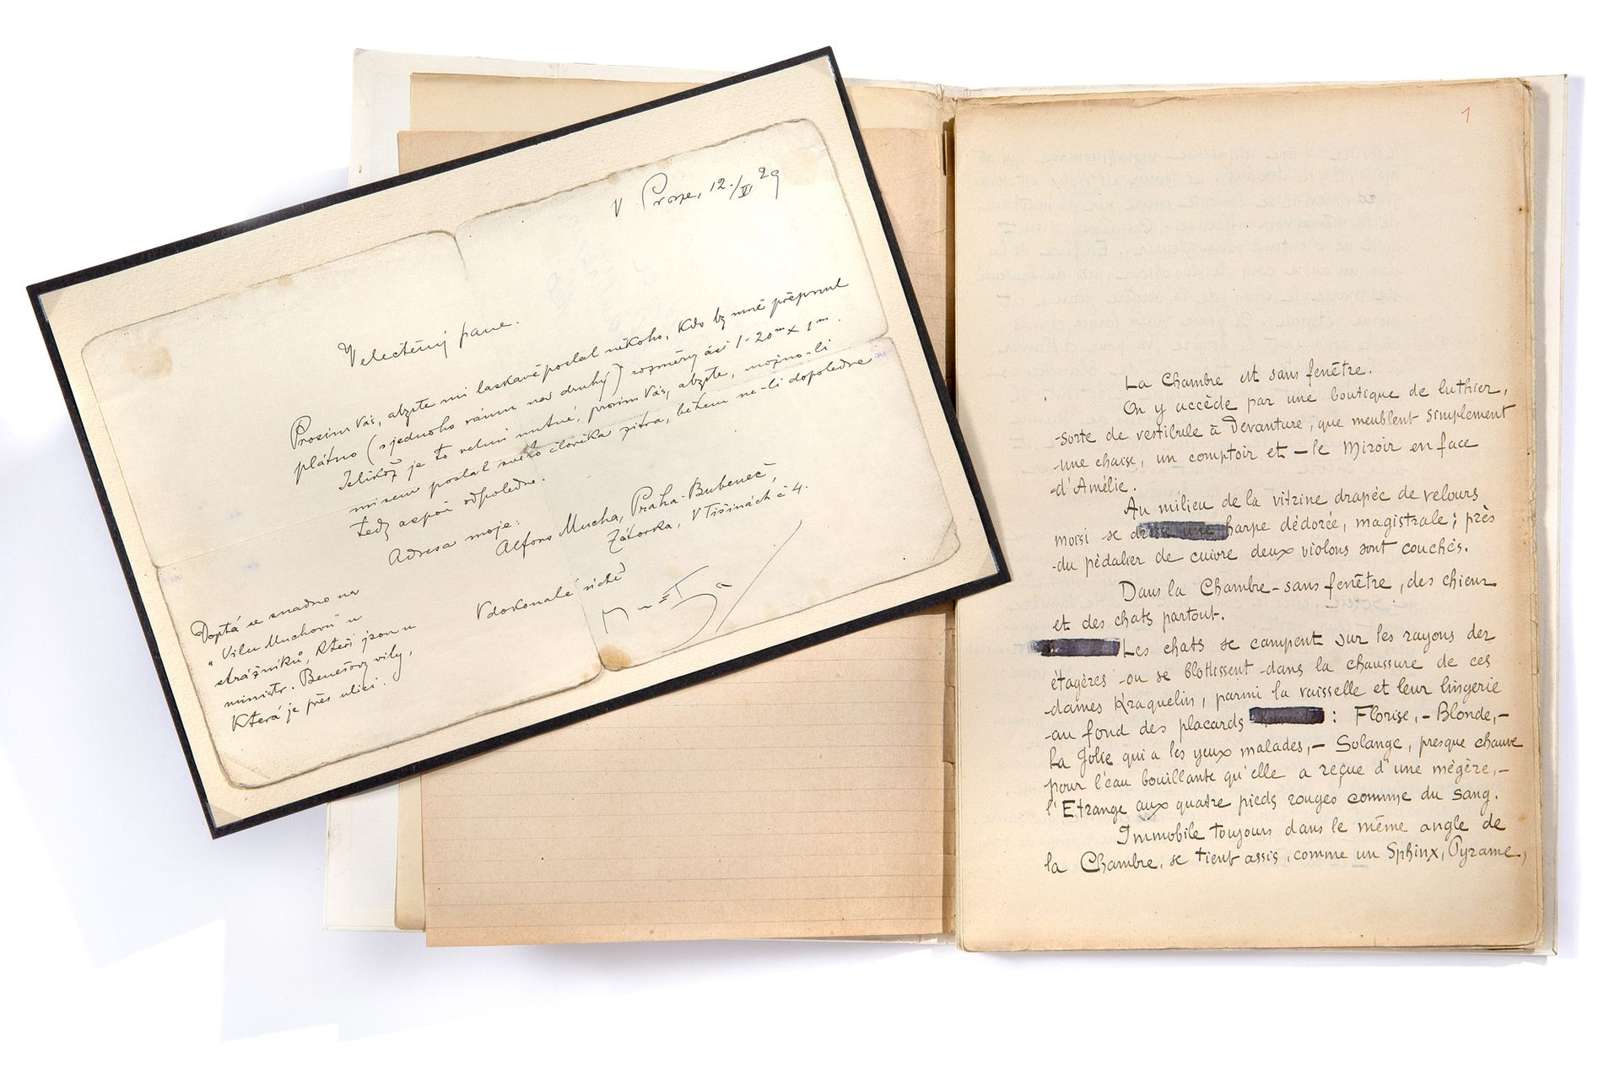 V Praze, 12./VI 29
Velectěný pane.
Prosím Vás, abyste mi laskavě poslal někoho, kdo by mně přepnul
plátno (s jednoho rámu na druhý) rozměry asi 1·20m x 1m.
Jelikož je to velmi nutné, prosím Vás, abyste, možno-li
mi sem poslal svého člověka zítra, během ne-li dopoledne
tedy aspoň odpoledne.
Adresa moje:
Alfons Mucha, Praha-Bubeneč,
Zátorka, V Tišinách č 4.
V dokonalé úctě
Mucha
Doptá se snadno na
"Vilu Muchovu" u
strážníků, kteří jsou u
ministr. Benešovy vily,
která je přes ulici.
1
La Chambre est sans fenêtre.
On y accède par une boutique de luthier,
sorte de vestibule à devanture, que meublent simplement
une chaise, un comptoir et – le Miroir en face
d'Amélie.
Au milieu de la vitrine drapée de velours
moisi se harpe dédorée, magistrale ; près
du pédalier de cuivre deux violons sont couchés.
Dans la Chambre-sans fenêtre, des chiens
et des chats partout.
Les chats se campent sur les rayons des
étagères ou se blotissent dans la chaussure de ces
dames Kraquelin, parmi la vaisselle et leur lingerie
au fond des placards : Florise, – Blonde, –
la Jolie qui a les yeux malades, – Solange, presque chauve
pour l'eau bouillante qu'elle a reçue d'une mégère, –
l'Etrange aux quatre pieds rouges comme du sang.
Immobile toujours dans le même angle de
la Chambre, se tient assis, comme un Sphinx, Pyrame,